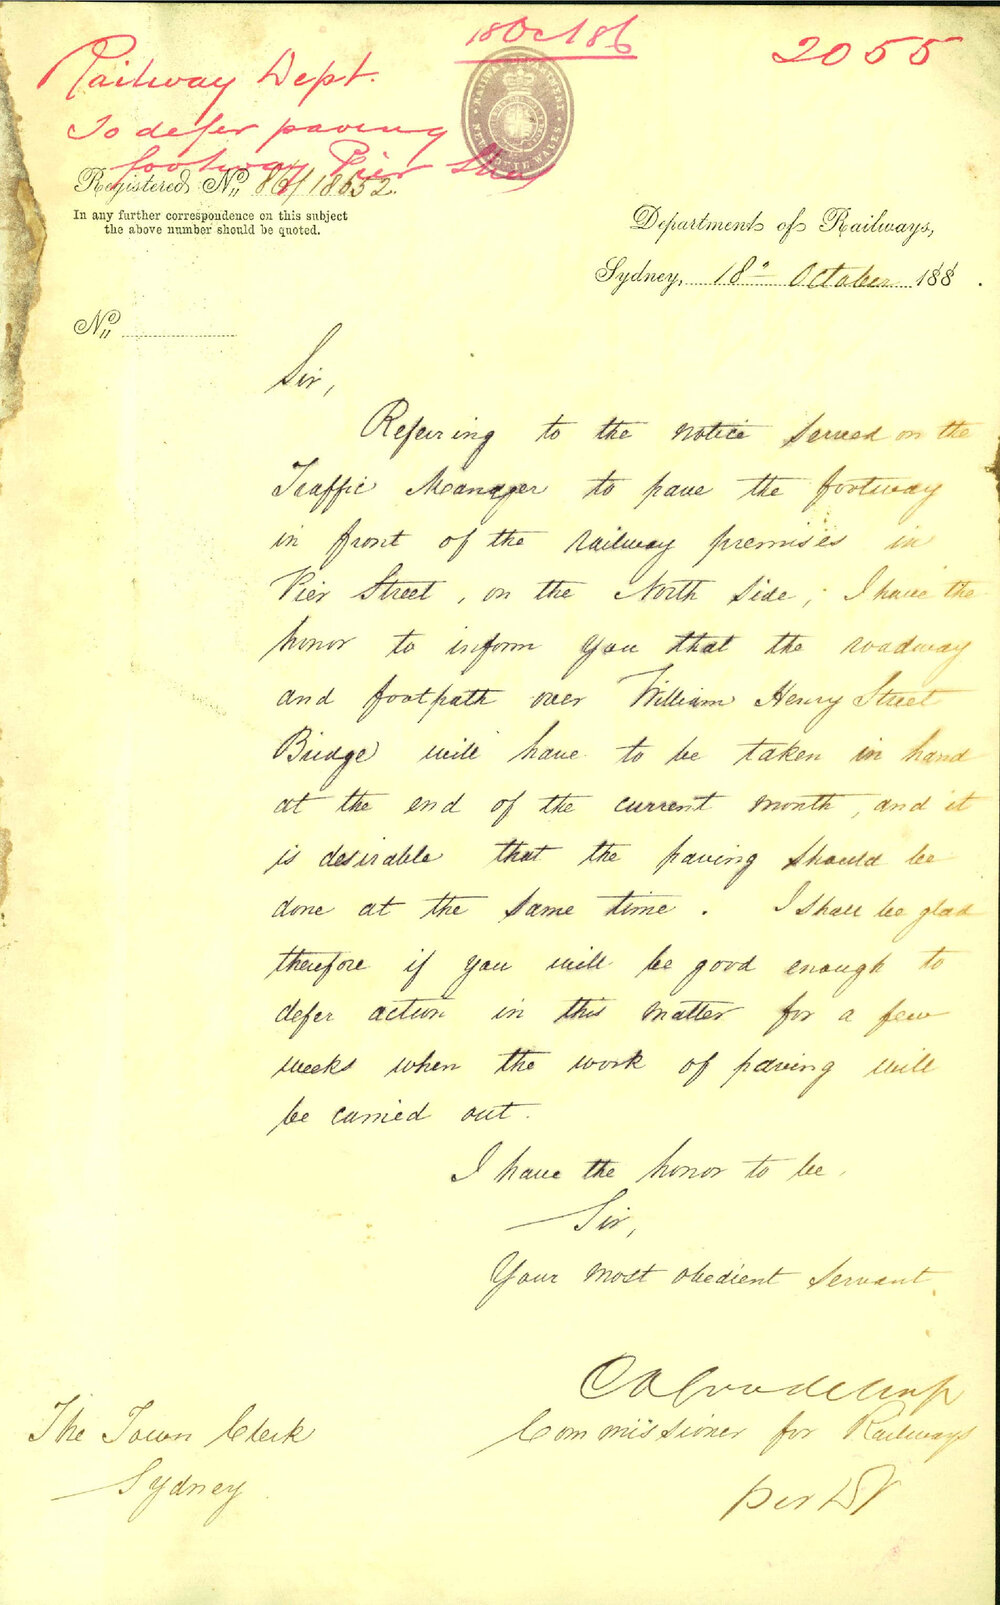 18 Oct 86
2055
Railway Dept.
To defer paving
footway Pier Street
RAILWAY DEPARTMENT
NEW SOUTH WALES
Registered No. 86/18652.
In any further correspondence on this subject
the above number should be quoted.
Department of Railways,
Sydney, 18th October 188 .
No.
Sir,
Referring to the notice served on the
Traffic Manager to pave the footway
in front of the railway premises in
Pier Street, on the North side; I have the
honor to inform you that the roadway
and footpath over William Henry Street
Bridge will have to be taken in hand
at the end of the current month, and it
is desirable that the paving should be
done at the same time. I shall be glad
therefore if you will be good enough to
defer action in this matter for a few
weeks when the work of paving will
be carried out.
I have the honor to be
Sir,
Your most obedient servant
Chas Goodchap
Commissioner for Railways
per
The Town Clerk
Sydney